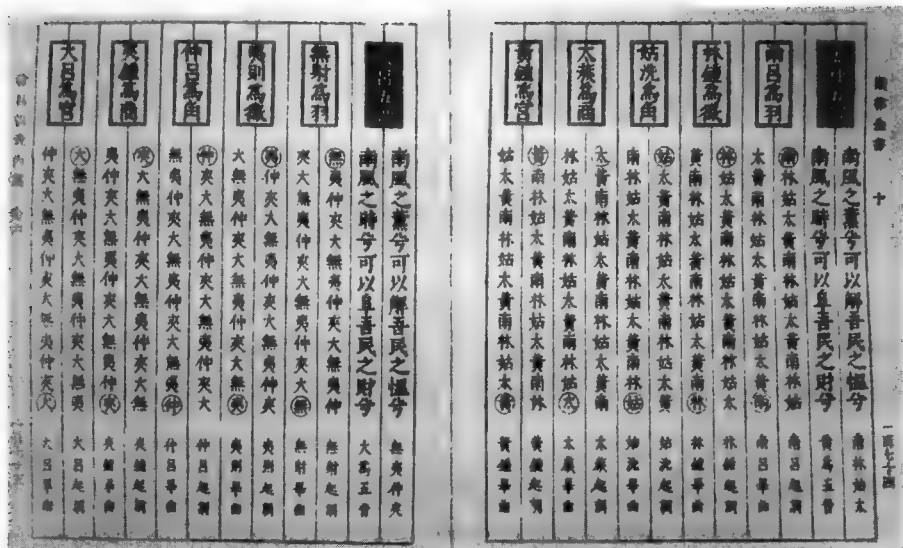 樂律全書 十
一百七十四
南風之薰兮可以解吾民之慍兮 南林姑太
南風之時兮可以阜吾民之財兮 黃為五音
南呂為羽
南林姑太黃南林姑太黃南林姑 南呂起調
太黃南林姑太黃南林姑太黃南 南呂畢曲
林鐘為徵
林姑太黃南林姑太黃南林姑太 林鐘起調
黃南林姑太黃南林姑太黃南林 林鐘畢曲
姑洗為角
姑太黃南林姑太黃南林姑太黃 姑洗起調
南林姑太黃南林姑太黃南林姑 姑洗畢曲
太蔟為商
太黃南林姑太黃南林姑太黃南 太蔟起調
林姑太黃南林姑太黃南林姑太 太蔟畢曲
黃鐘為宮
黃南林姑太黃南林姑太黃南林 黃鐘起調
姑太黃南林姑太黃南林姑太黃 黃鐘畢曲
南風之薰兮可以解吾民之慍兮 無夷仲夾
南風之時兮可以阜吾民之財兮 大為五音
無射為羽
無夷仲夾大無夷仲夾大無夷仲 無射起調
夾大無夷仲夾大無夷仲夾大無 無射畢曲
夷則為徵
夷仲夾大無夷仲夾大無夷仲夾 夷則起調
大無夷仲夾大無夷仲夾大無夷 夷則畢曲
仲呂為角
仲夾大無夷仲夾大無夷仲夾大 仲呂起調
無夷仲夾大無夷仲夾大無夷仲 仲呂畢曲
夾鐘為商
夾大無夷仲夾大無夷仲夾大無 夾鐘起調
夷仲夾大無夷仲夾大無夷仲夾 夾鐘畢曲
大呂為宮
大無夷仲夾大無夷仲夾大無夷 大呂起調
仲夾大無夷仲夾大無夷仲夾大 大呂畢曲